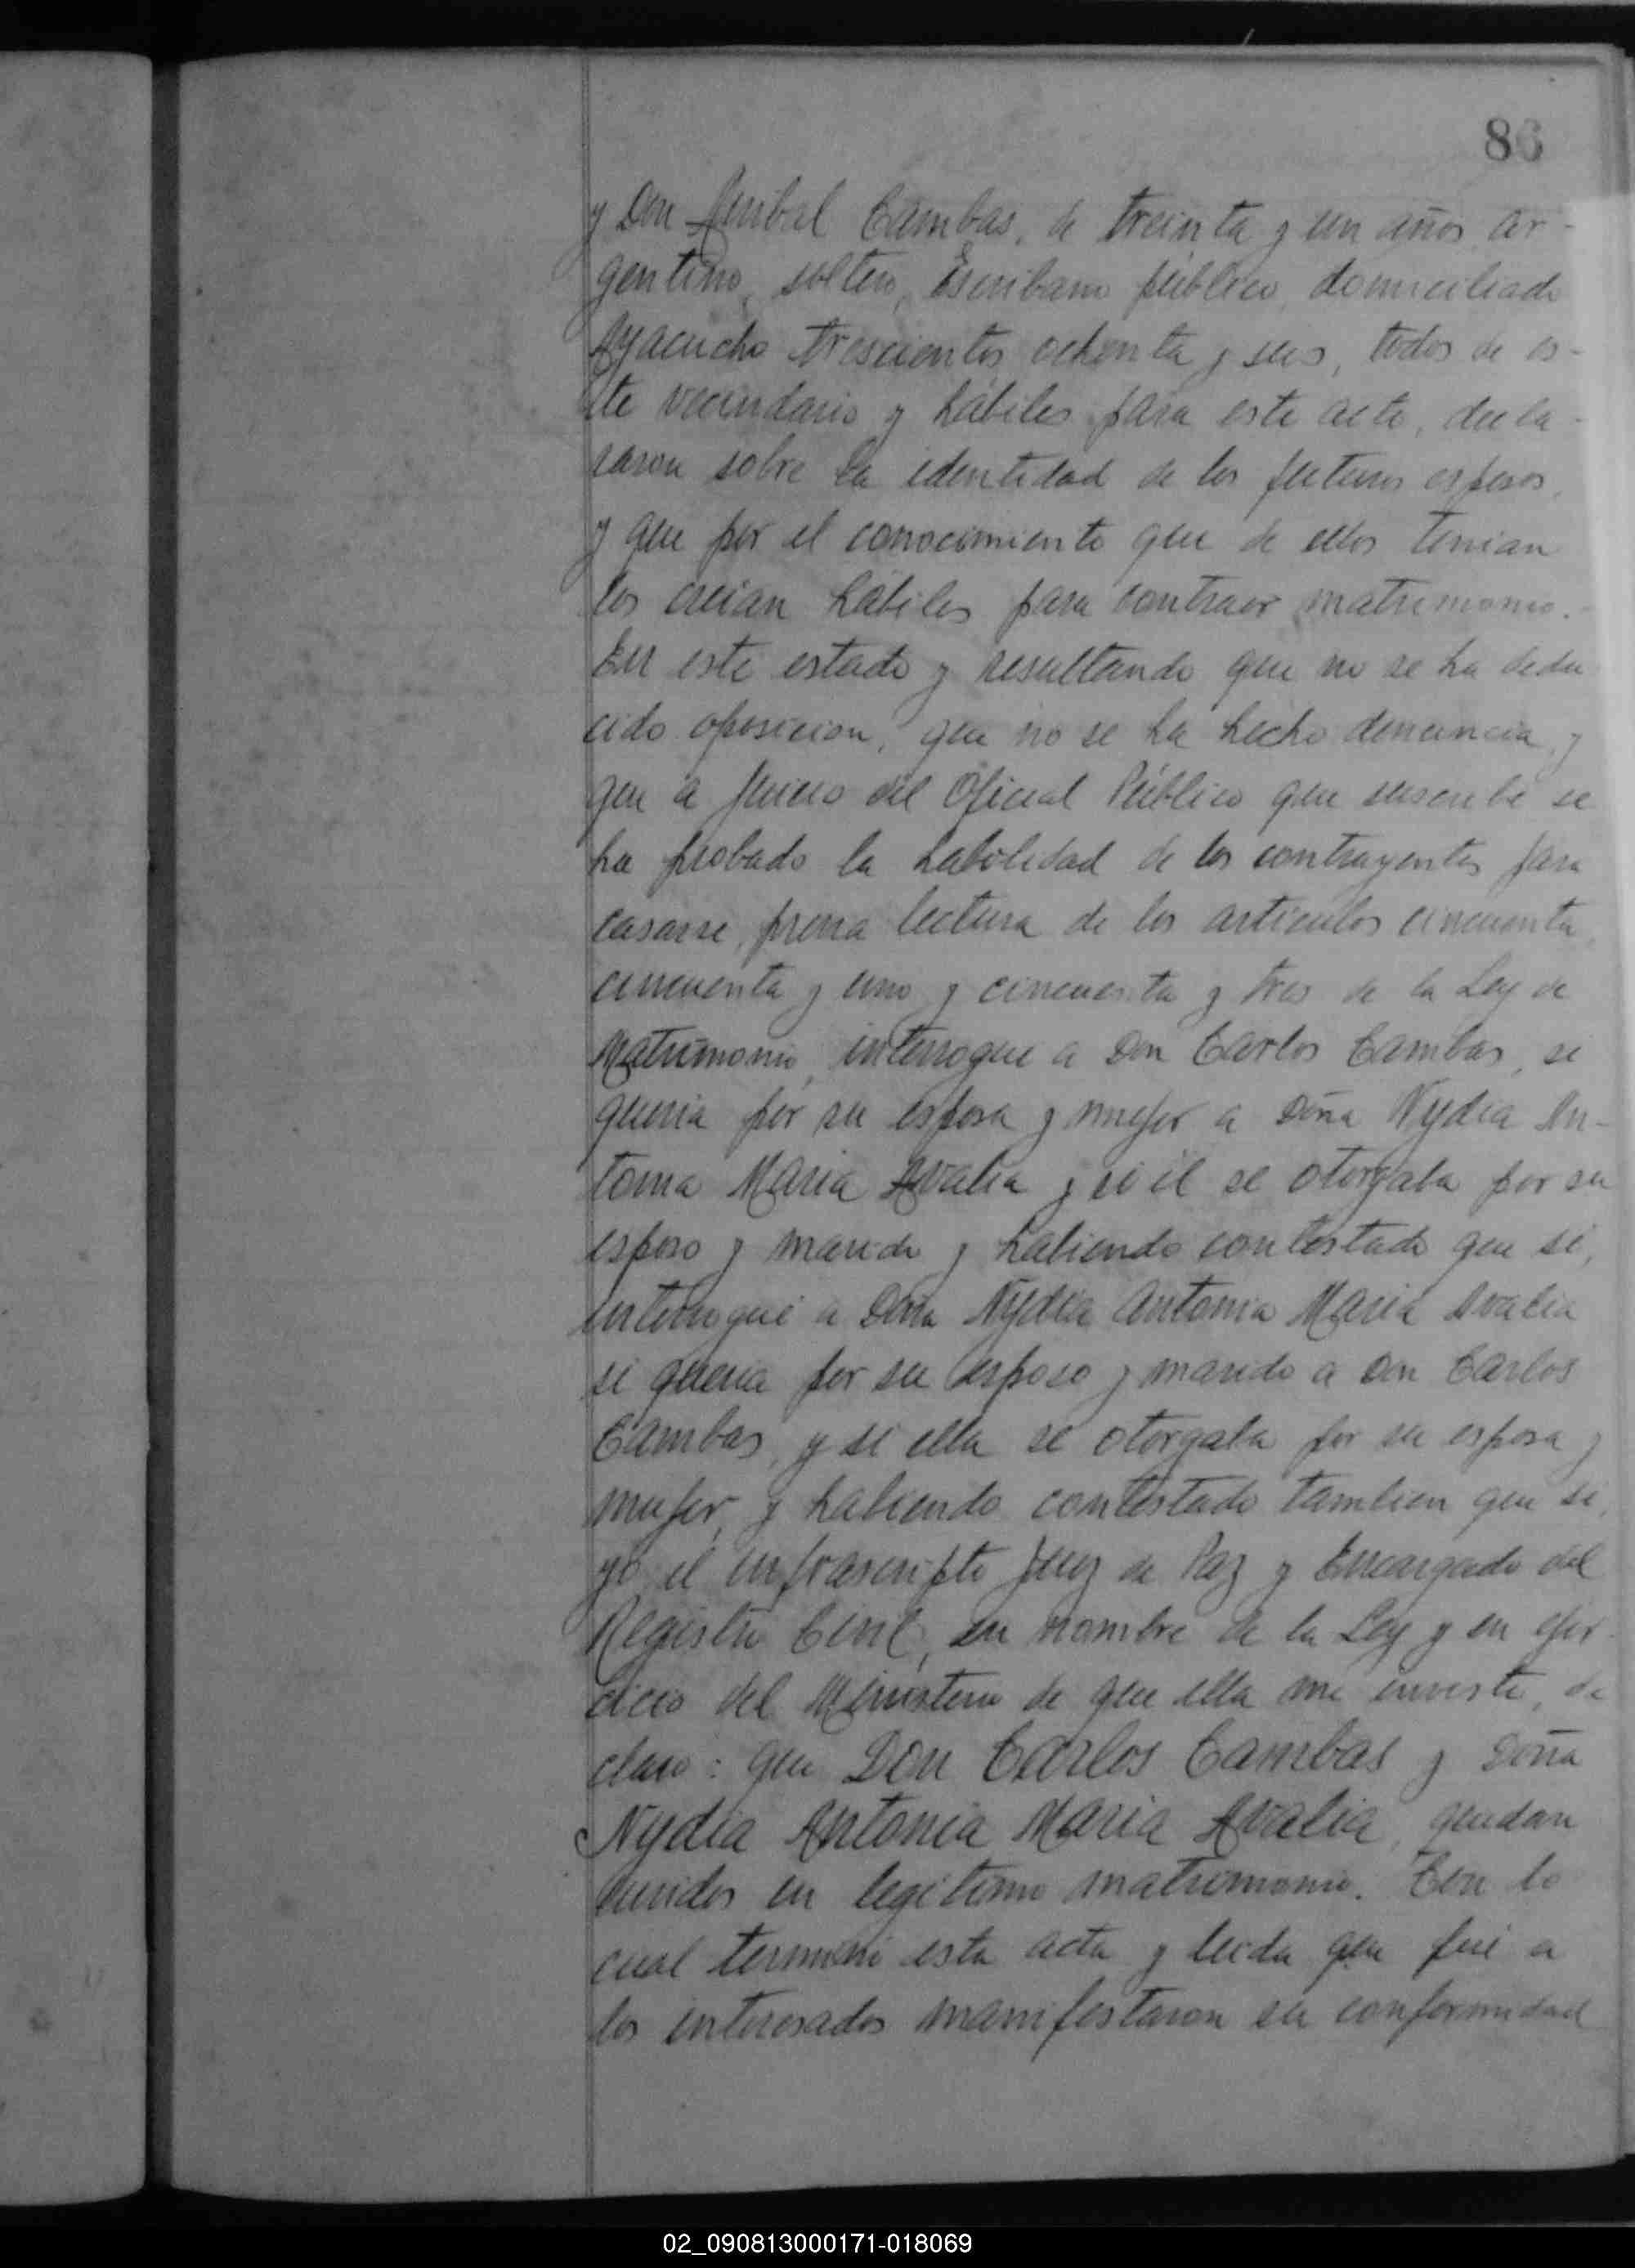 86
y Don Anibal Cambas, de treinta y un años, ar-
gentino, soltero, Escribano público, domiciliado
Ayacucho trescientos ochenta y seis, todos de es-
te vecindario y hábiles para este acto, decla-
raron sobre la identidad de los futuros esposos,
y que por el conocimiento que de ellos tenian
los creian hábiles para contraer matrimonio.-
En este estado y resultando que no se ha dedu
cido oposicion, que no se ha hecho denuncia, y
que á juicio del Oficial Público que suscribe se
ha probado la habilidad de los contrayentes para
casarse, previa lectura de los articulos cincuenta,
cincuenta y uno y cincuenta y tres de la Ley de
Matrimonio, interrogue a Don Carlos Cambas, si
queria por su esposa y mujer a Doña Nydia An-
tonia Maria Avalia y si él se otorgaba por su
esposo y marido y habiendo contestado que si,
interrogué a Doña Nydia Antonia Maria Avalia
si queria por su esposo y marido a Don Carlos
Cambas, y si ella se otorgaba por su esposa y
mujer, y habiendo contestado tambien que si,
yo el infrascripto Juez de Paz y Encargado del
Registro Civil, en nombre de la Ley y en ejer-
cicio del Ministerio de que ella me inviste, de
claro: que Don Carlos Cambas y Doña
Nydia Antonia Maria Avalia, quedan
unidos en legitimo matrimonio. Con lo
cual terminó esta acta y leida que fué a
los interesados manifestaron su conformidad
02_090813000171-018069